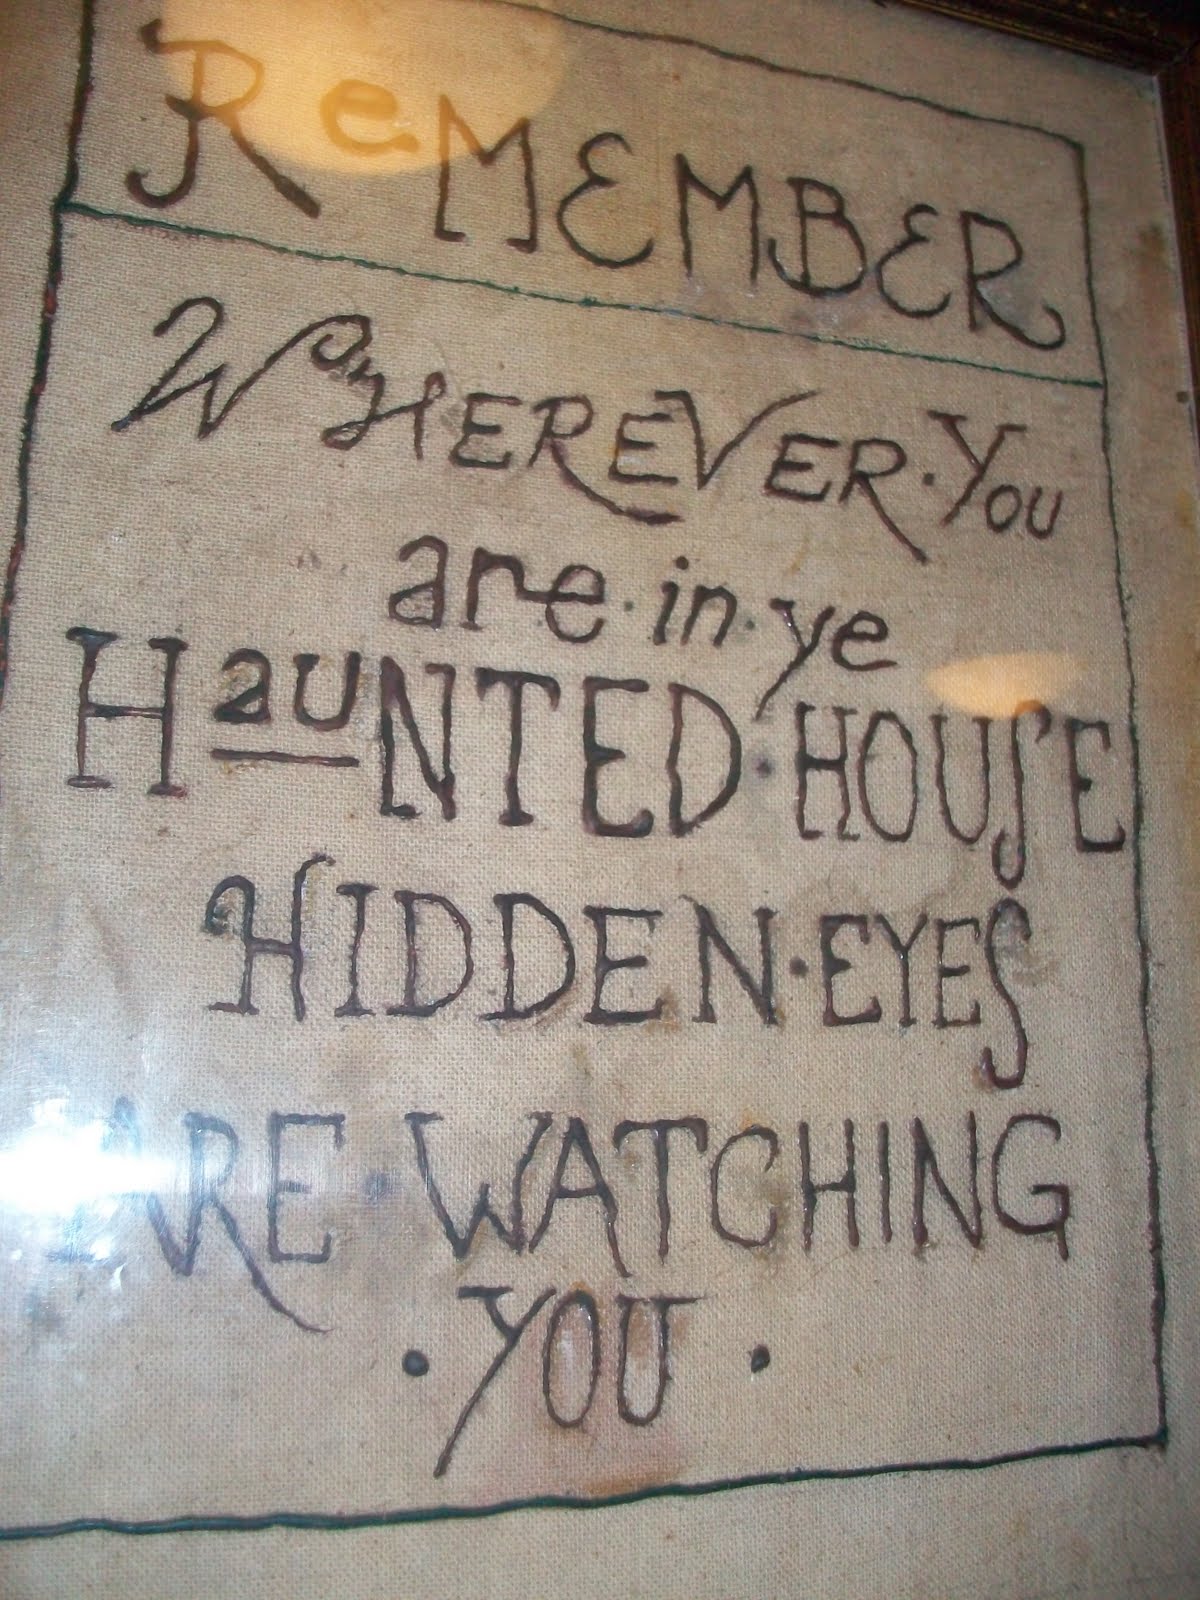 ReMEMBER
WHEREVER·YOU
are·in·ye
HauNTED·HOUSE
HIDDEN·EYES
ARE·WATCHING
·YOU·